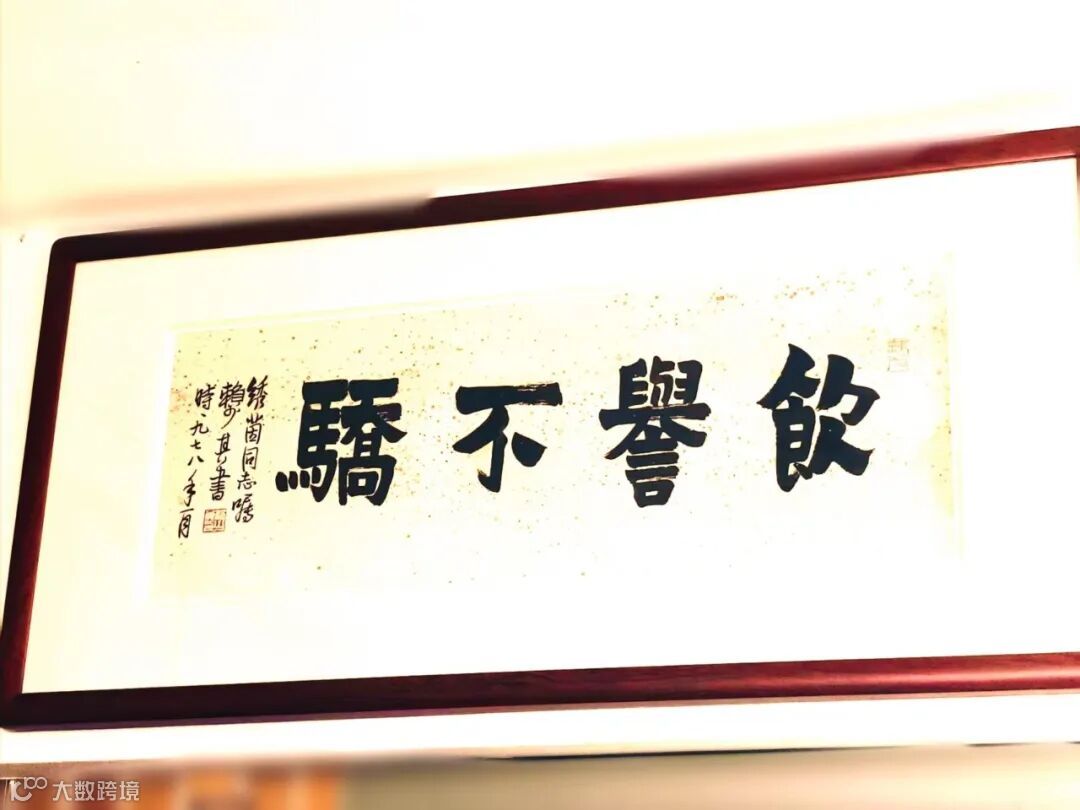 飲譽不驕
鍾茵同志囑
賴少其書
時一九七八年一月
大数跨境